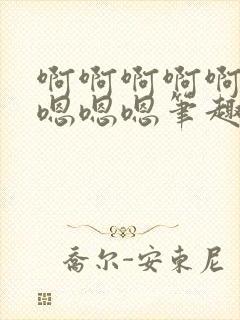 啊啊啊啊啊
嗯嗯嗯笔趣
乔尔-安东尼